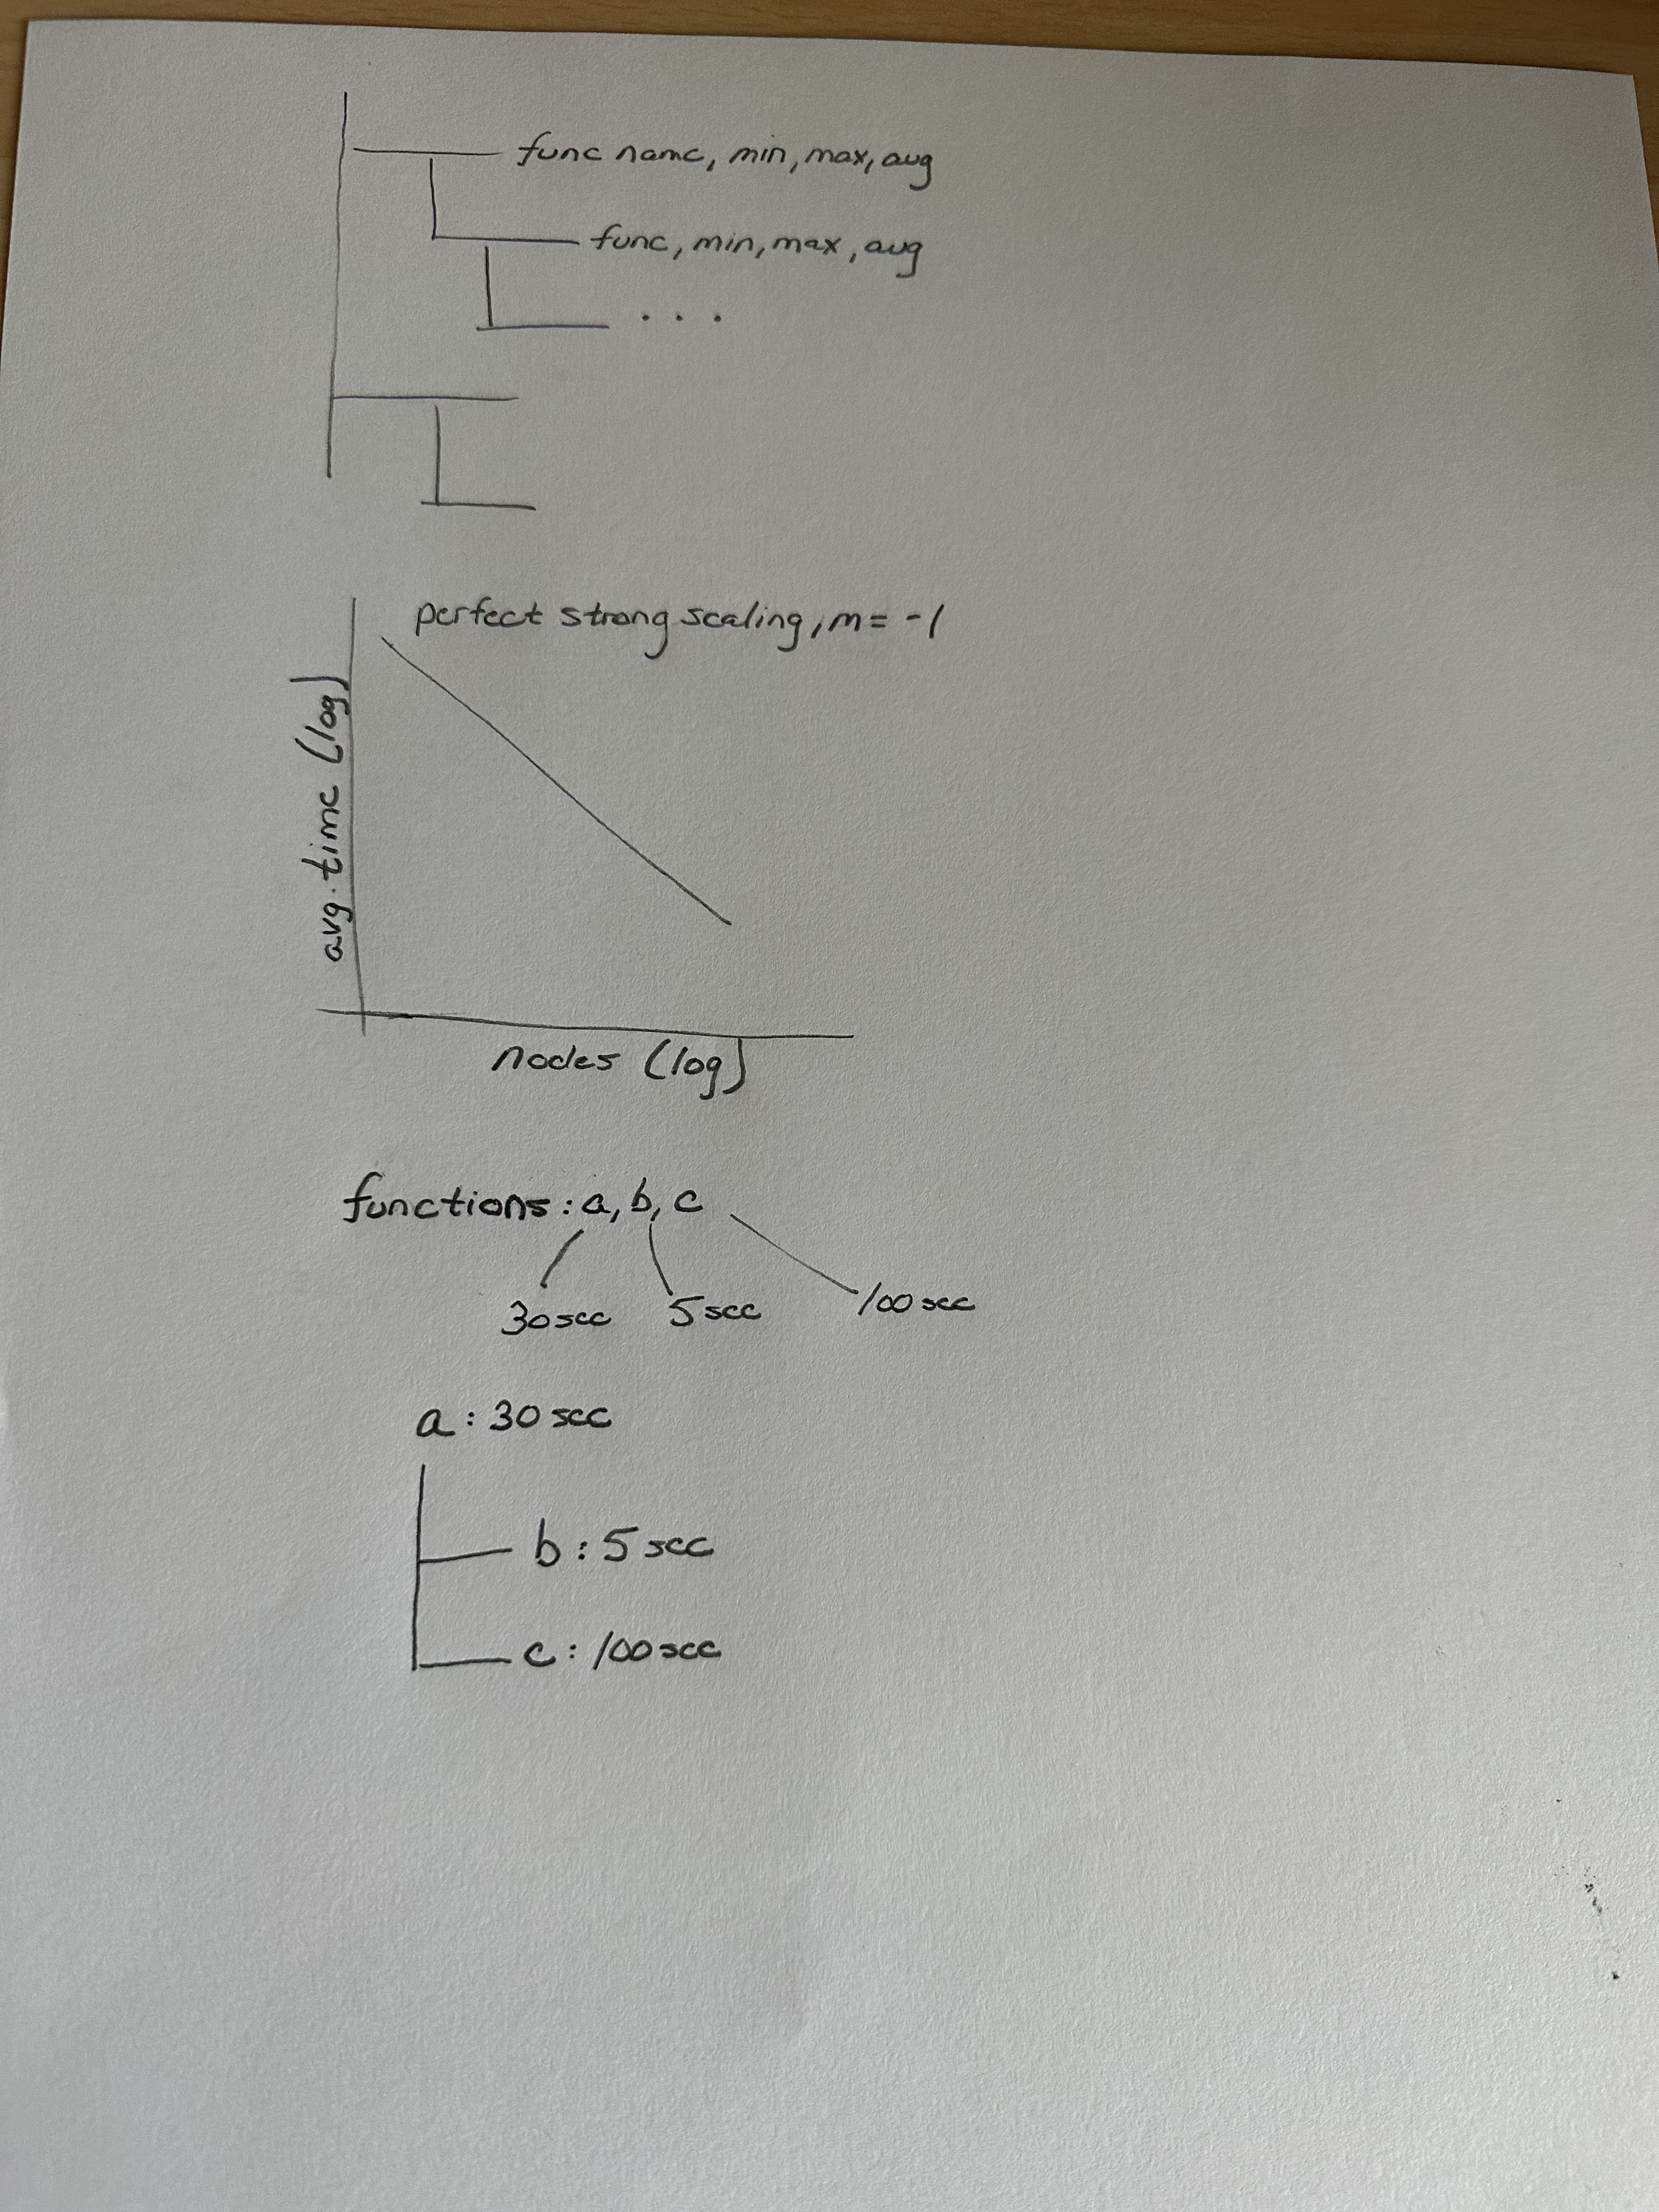 func name, min, max, avg
func, min, max, avg
. . .
perfect strong scaling, m = -1
avg. time (log)
nodes (log)
functions: a, b, c
30 sec 5 sec 100 sec
a: 30 sec
b: 5 sec
c: 100 sec